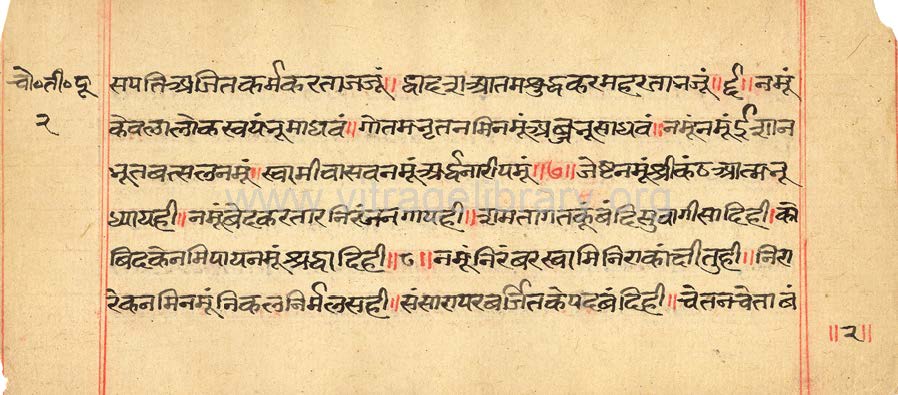 चो॰ती॰पू
२
सपतिअजितकर्मकरताजजूं॥ द्वादशआतमश्रुद्धकरमहरतानजूं॥६॥नमूं
केवलालोकस्वयंनूमाधवं॥गोतमनृतनमिनमूंअब्जनूसाधवं॥नमूंनमूंईशान
भूतवत्सलनमूं॥स्वामीवासवनमूंअर्द्धनारीयमूं॥७॥जेष्टनमूंश्रीकंठआत्मनू
ध्यायही॥नमूंवेदकरतारनिरंजनगायही॥रामतागतकूंबंदिसुवागीसादिही॥को
बिदकेनमिपायनमूंश्रद्वादिही॥८॥नमूंनिरंबरस्वामिनिराकांक्षीतुही॥निरा
रेकनमिनमूंनिकलनिर्मलसही॥संसारापरबर्जितकेपदबंदिही॥चेतनचेताबं
॥२॥
www.vitragelibrary.org